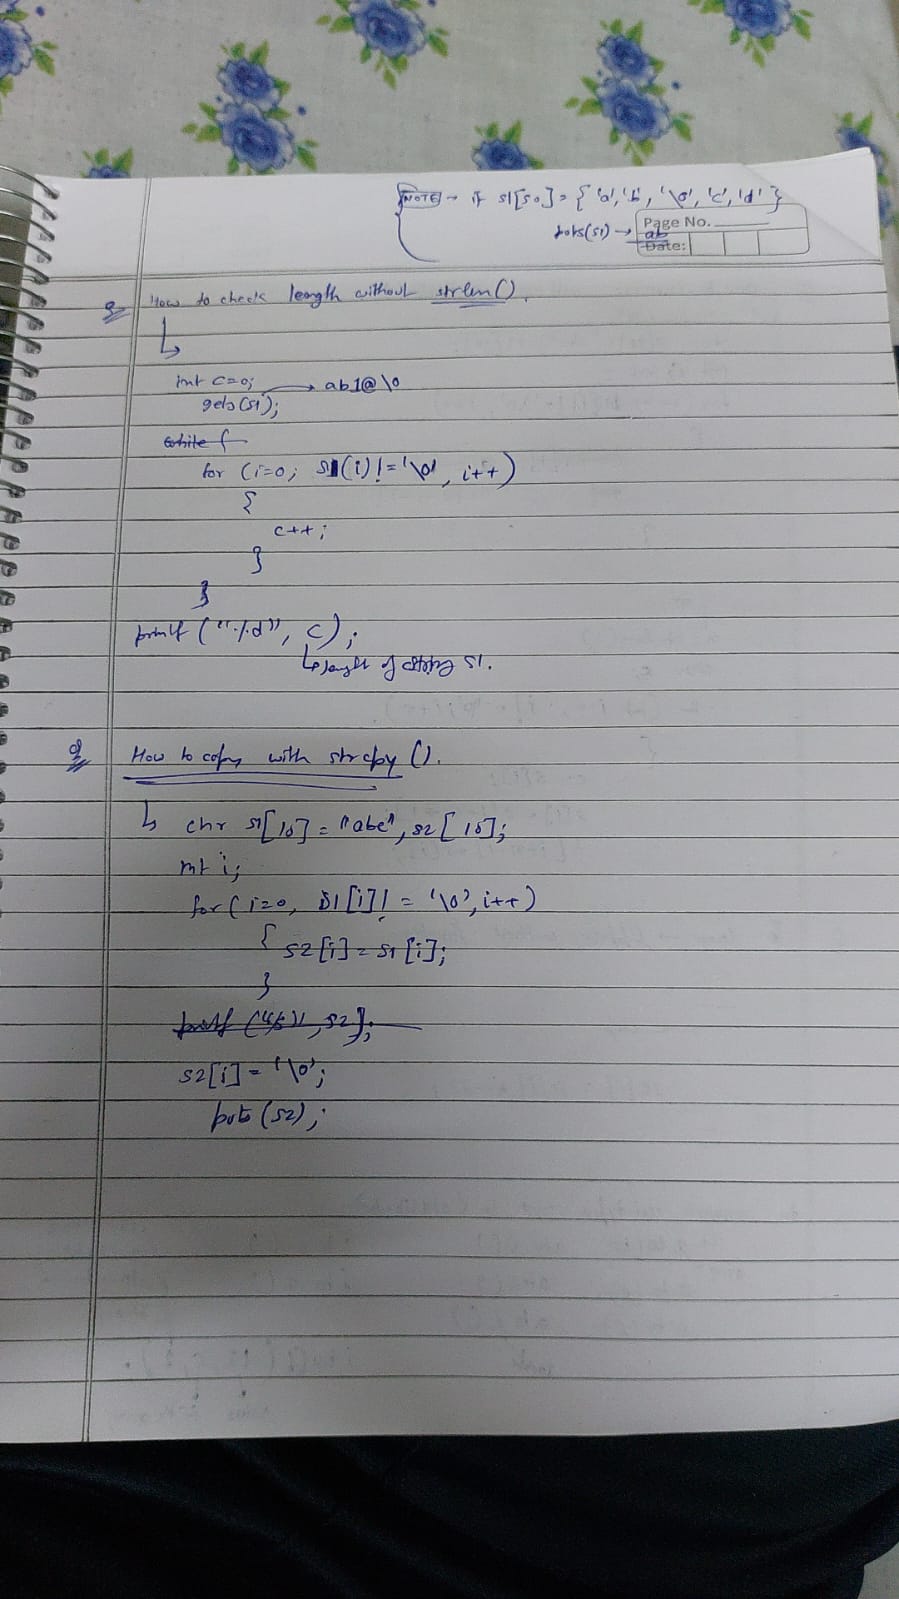 NOTE → if s1[50] = { 'a', 'b', '\0', 'c', 'd' }
puts(s1) → ab
Page No.
Date:
Q How to check leangth without strlen().
↳
int c=0;
gets(s1); → ab1@\0
while {
for (i=0; s1(i) != '\0', i++)
{
c++;
}
}
printf ("%d", c);
↳ length of string s1.
Q How to copy with strcpy ().
↳ chr s1[10] = "abc", s2[10];
int i;
for (i=0, s1[i] != '\0', i++)
{ s2[i] = s1[i];
}
s2[i] = '\0';
puts (s2);